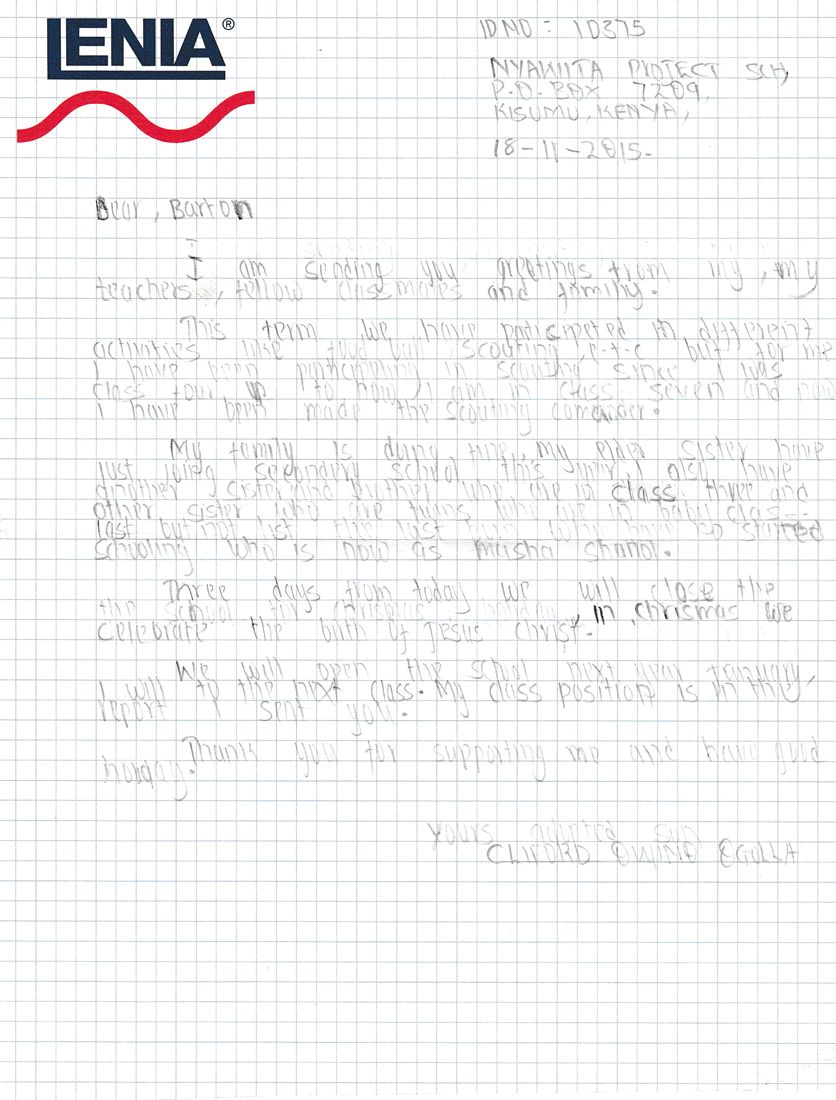 LENIA®
ID NO = 10375
NYAKIITA PROTECT SCH,
P.O. BOX 7209,
KISUMU, KENYA,
18-11-2015.
Dear, Barton
I am sending you greetings from my, my
teachers, fellow classmates and
This term we have participeted in differeint
activities like foot ball, scouting, e.t.c but for me
I have been participeting in scouting since I was
class four up to now, I am in class seven and now
I have been made the scouting comander.
My family is doing fine, my elder sister have
just joing secondery school this year, I also have
another sister and brother who are in class three and
other sister who are twins who are in baby class
last but not list the last born who have so started
schooling who is now as masha shanol.
Three days from today we will close the
the school for chrismas holiday, in chrismas we
celebrate the birth of Jesus christ.
We will open the school next year
I will to the next class. My class position is in the
report I sent you.
Thank you for supporting me and have good
yours adopted son